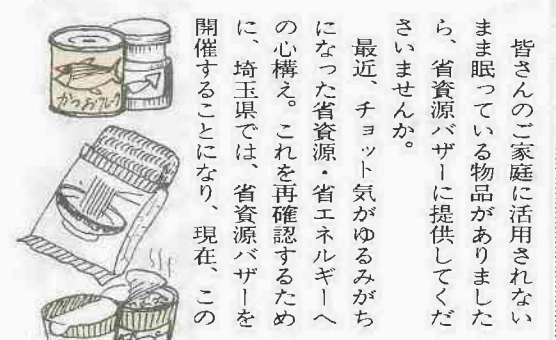 皆さんのご家庭に活用されない
まま眠っている物品がありました
ら、省資源バザーに提供してくだ
さいませんか。
最近、チョット気がゆるみがち
になった省資源・省エネルギーへ
の心構え。これを再確認するため
に、埼玉県では、省資源バザーを
開催することになり、現在、この
かつおフレーク